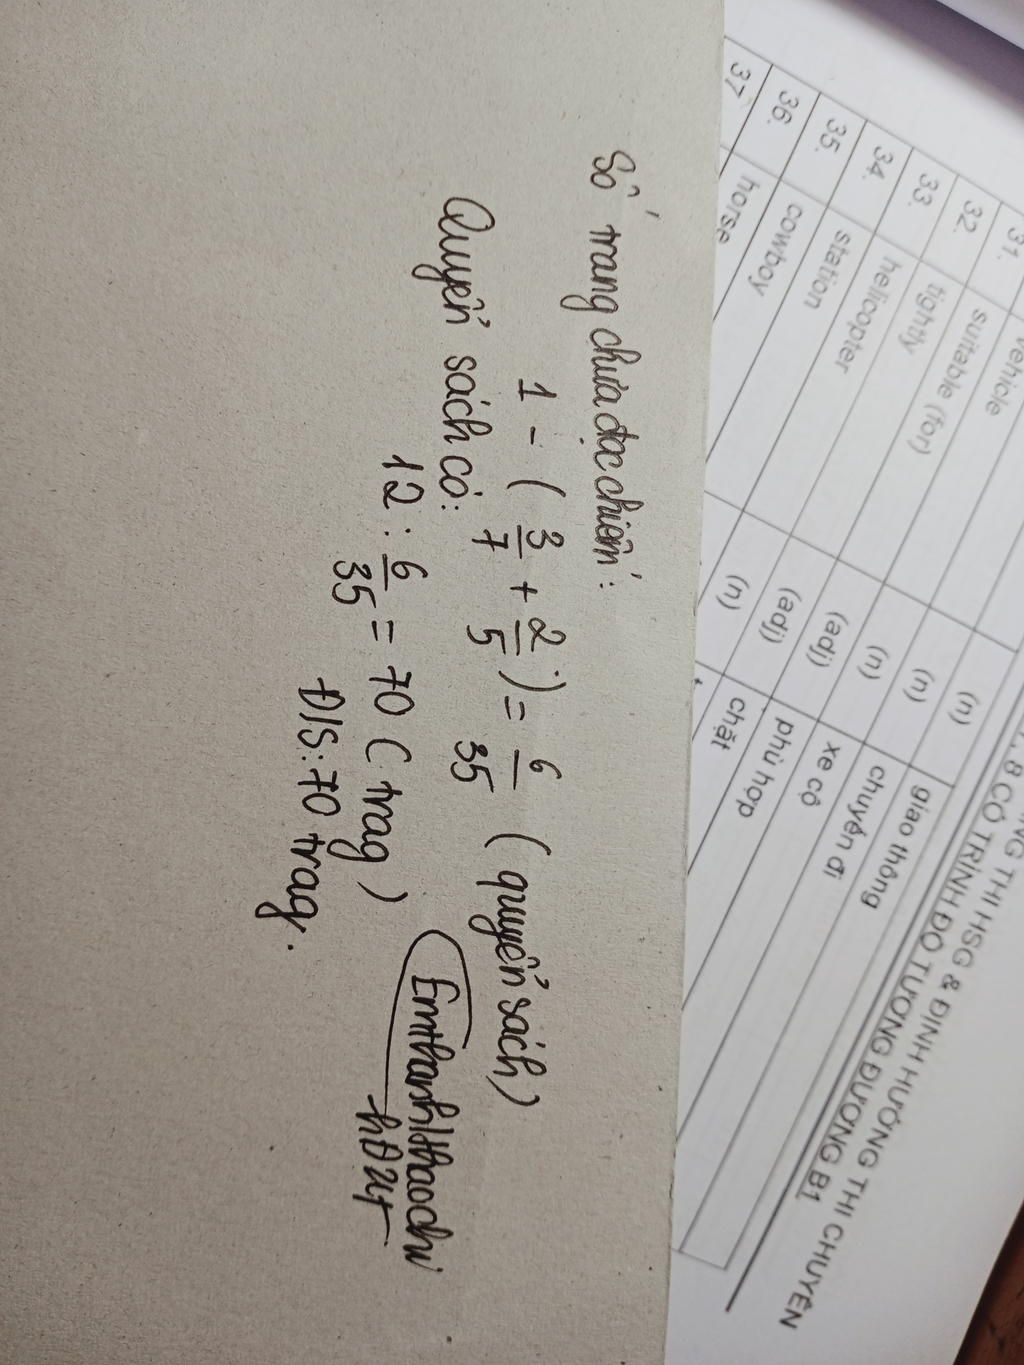 Số trang chưa đọc chiếm:
1 - ( 3/7 + 2/5 ) = 6/35 ( quyển sách )
Quyển sách có:
12 : 6/35 = 70 ( trag )
Đ/S: 70 trag.
NG THI HSG & ĐỊNH HƯỚNG THI CHUYÊN
, 8 CÓ TRÌNH ĐỘ TƯƠNG ĐƯƠNG B1
31. vehicle (n) giao thông
32. suitable (for)
33. tightly (n) chuyến đi
34. helicopter (n) xe cộ
35. station (adj) phù hợp
36. cowboy (adj) chặt
37. horse (n)